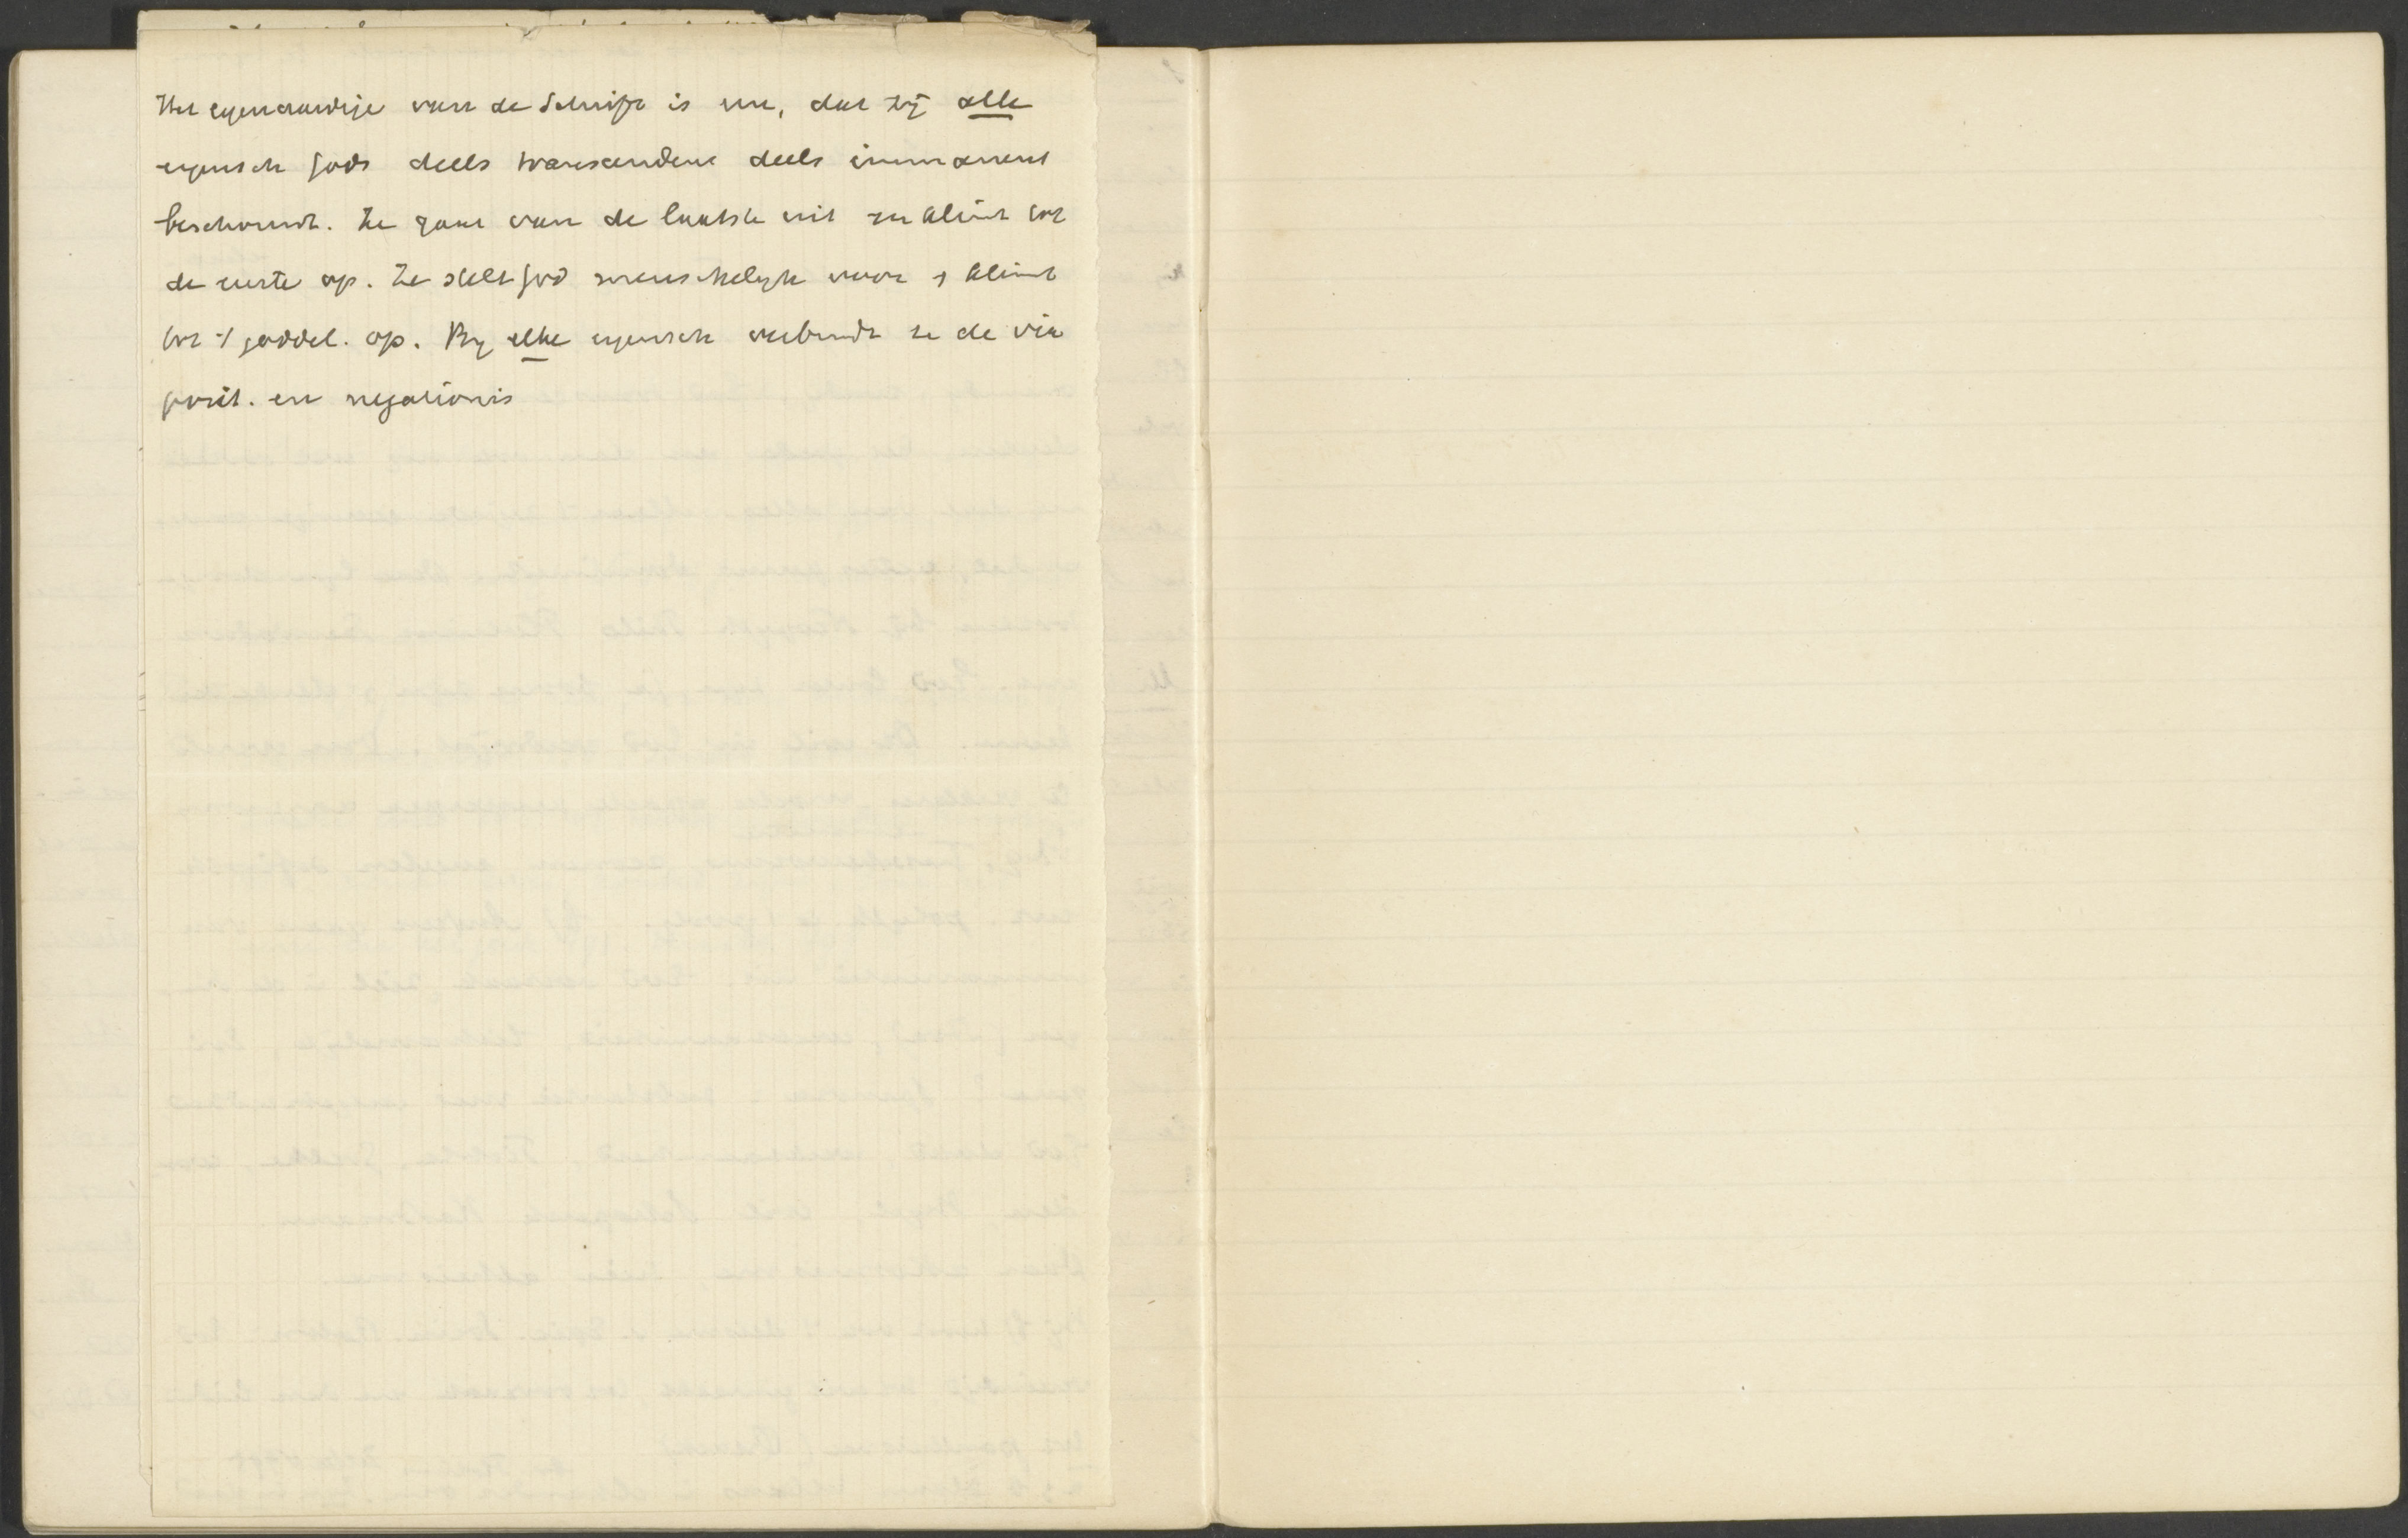 Het eigenaardige van de Schrift is nu, dat zij alle
eigensch Gods deels transcendent deels immanent
beschouwt. Ze gaat van de laatste uit en klimt tot
de eerste op. Ze stelt God menschelijk voor en klimt
tot 't goddel. op. By elke eigensch verbindt ze de via
posit. en negationis